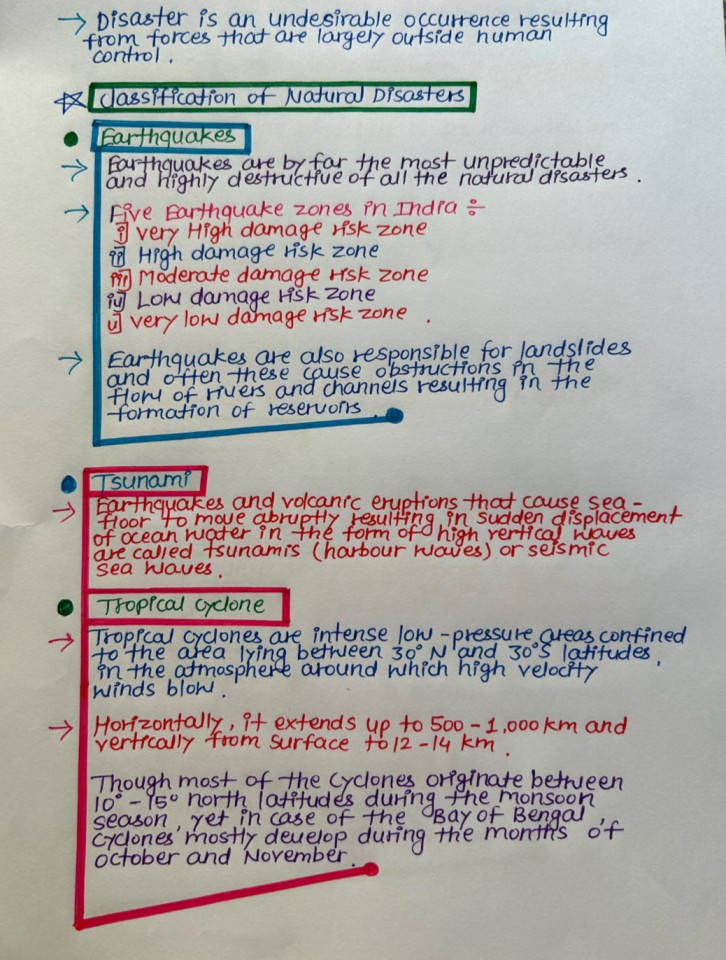 → Disaster is an undesirable occurrence resulting
from forces that are largely outside human
control.
☆ Classification of Natural Disasters
• Earthquakes
→ Earthquakes are by far the most unpredictable
and highly destructive of all the natural disasters.
→ Five Earthquake zones in India ÷
i) very High damage risk zone
ii) High damage risk zone
iii) Moderate damage risk zone
iv) Low damage risk zone
v) very low damage risk zone.
→ Earthquakes are also responsible for landslides
and often these cause obstructions in the
flow of rivers and channels resulting in the
formation of reservoirs.
• Tsunami
→ Earthquakes and volcanic eruptions that cause sea-
floor to move abruptly resulting in sudden displacement
of ocean water in the form of high vertical waves
are called tsunamis (harbour waves) or seismic
sea waves.
• Tropical cyclone
→ Tropical cyclones are intense low-pressure areas confined
to the area lying between 30° N and 30°S latitudes,
in the atmosphere around which high velocity
winds blow.
→ Horizontally, it extends up to 500-1,000 km and
vertically from surface to 12-14 km.
Though most of the cyclones originate between
10°-15° north latitudes during the monsoon
season, yet in case of the Bay of Bengal,
cyclones mostly develop during the months of
october and November.